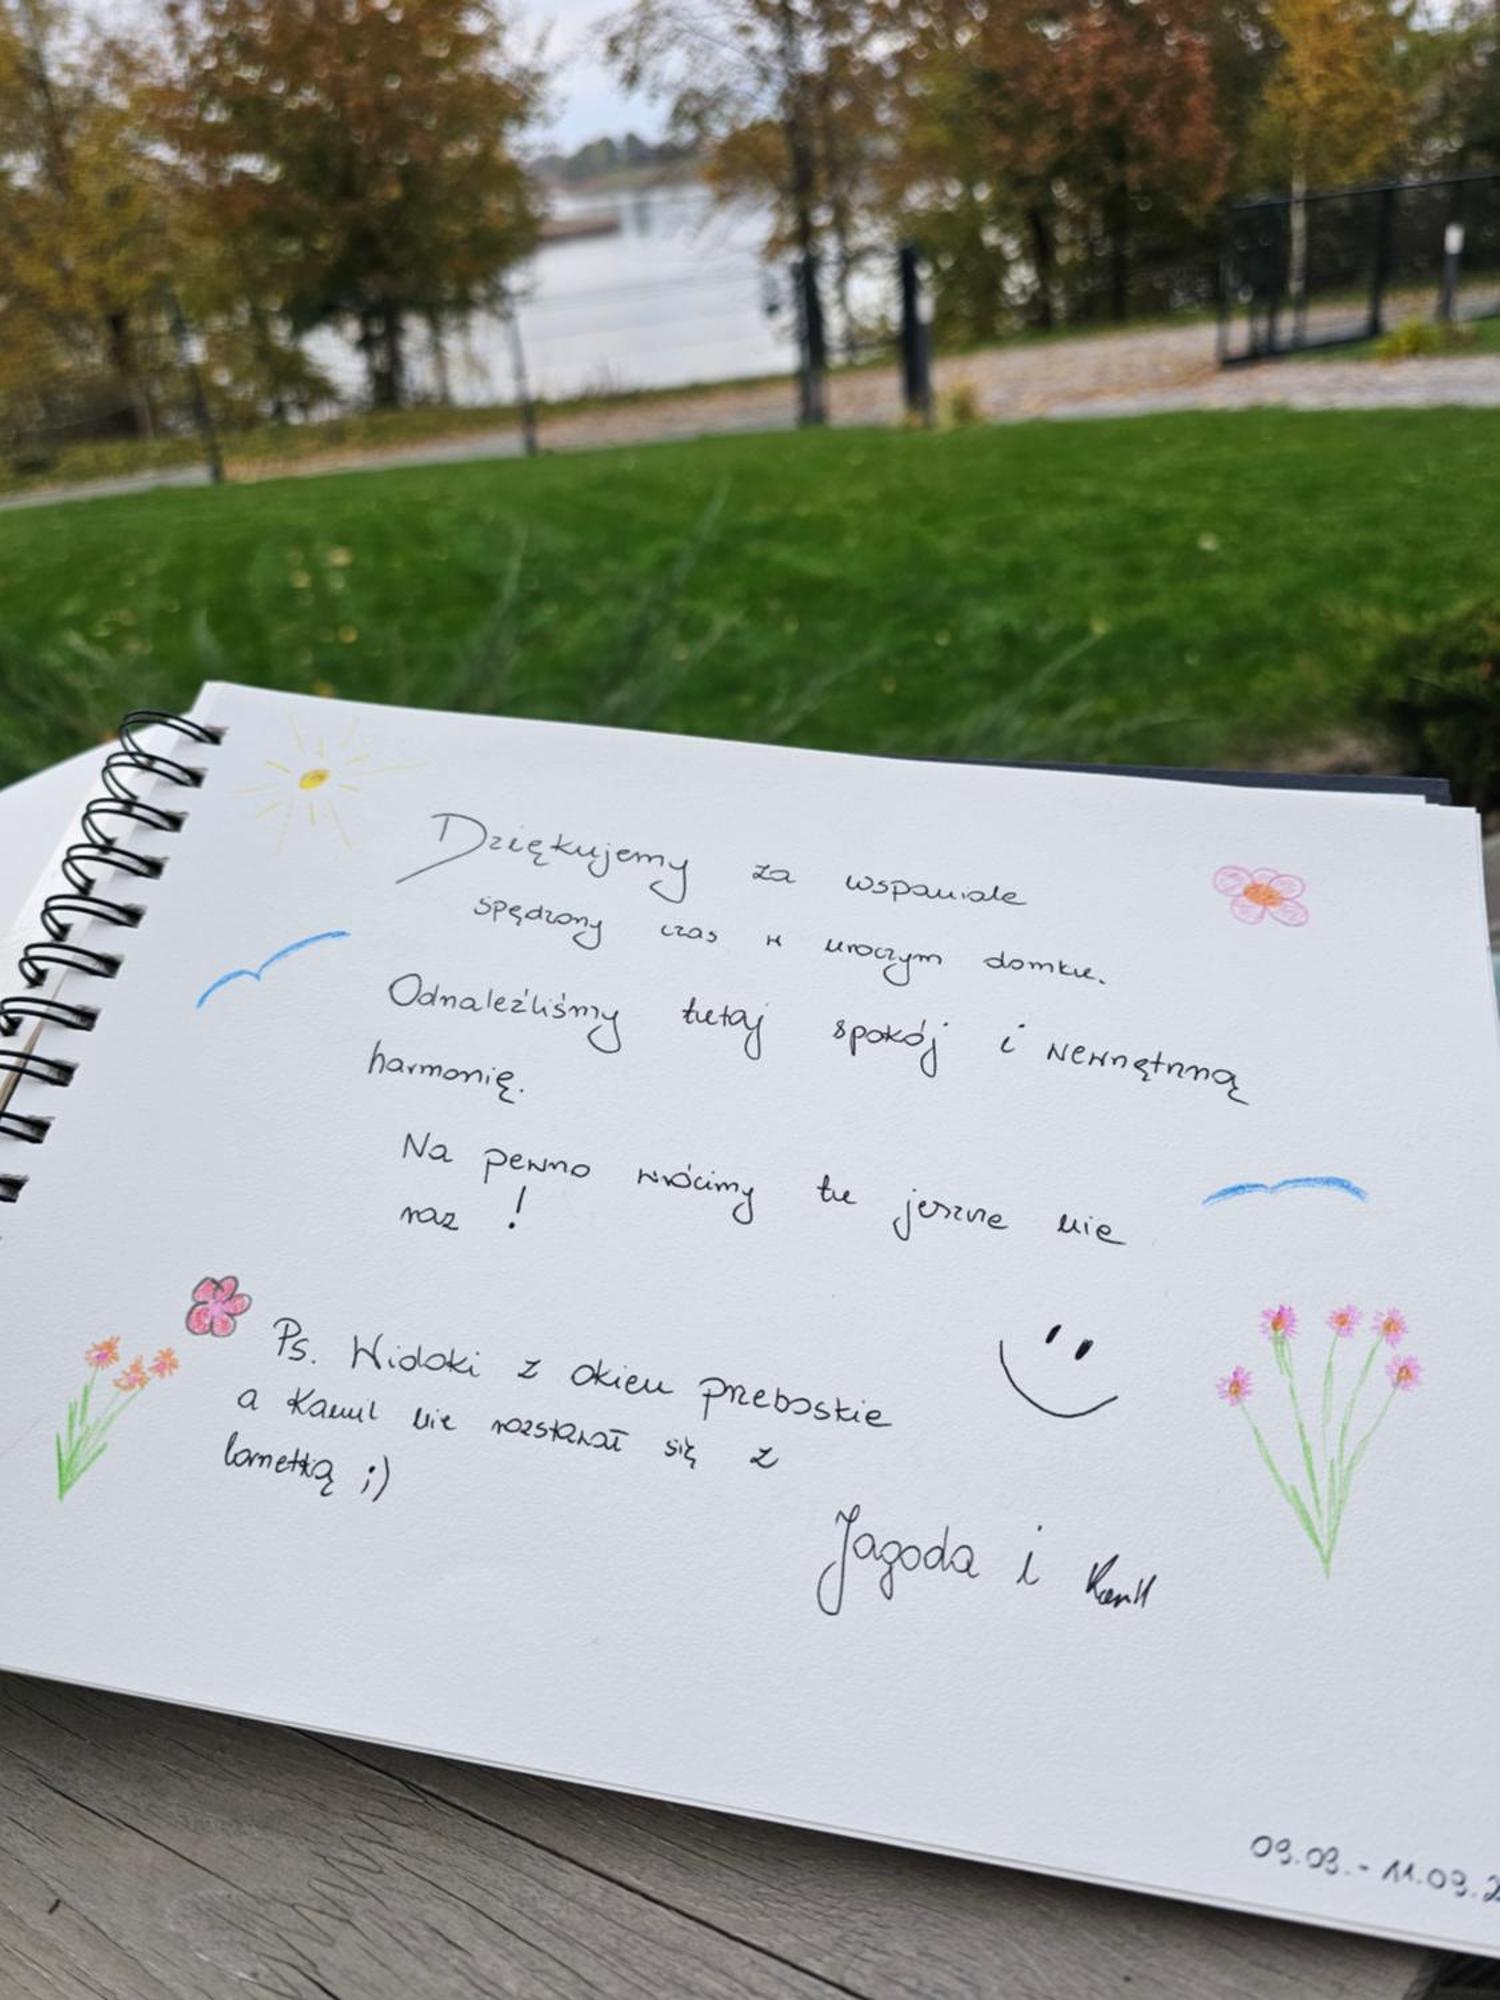 Dziękujemy za wspaniale
spędzony czas w uroczym domku.
Odnaleźliśmy tutaj spokój i wewnętrzną
harmonię.
Na pewno wrócimy tu jeszcze nie
raz !
Ps. Widoki z okien przeboskie
a Kamil nie rozstawał się z
lornetką ;)
Jagoda i Kamil
09.09.-11.09.2